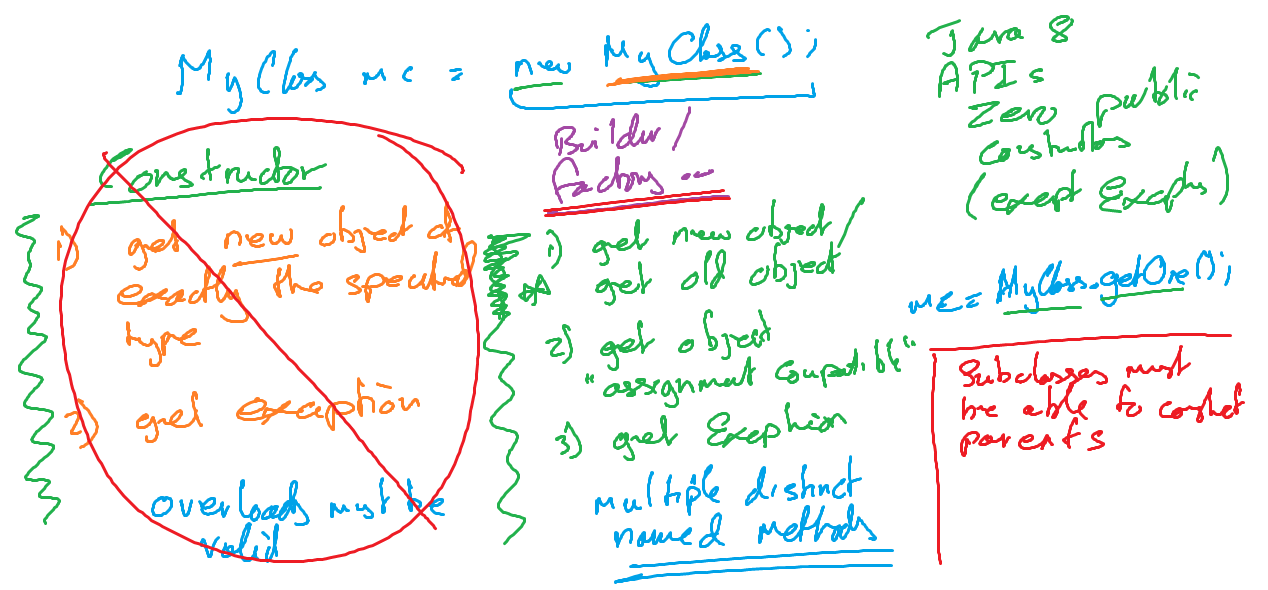 MyClass mc = new MyClass();
Constructor
1) get new object of
exactly the
type
2) get exception
overloads must be
valid
Builder/
factory ...
1) get new object/
get old object
2) get object
"assignment compatible"
3) get Exception
multiple distinct
named methods
Java 8
APIs
Zero public
constructors
(except
mc = MyClass.getOne();
Subclasses must
be able to
parents